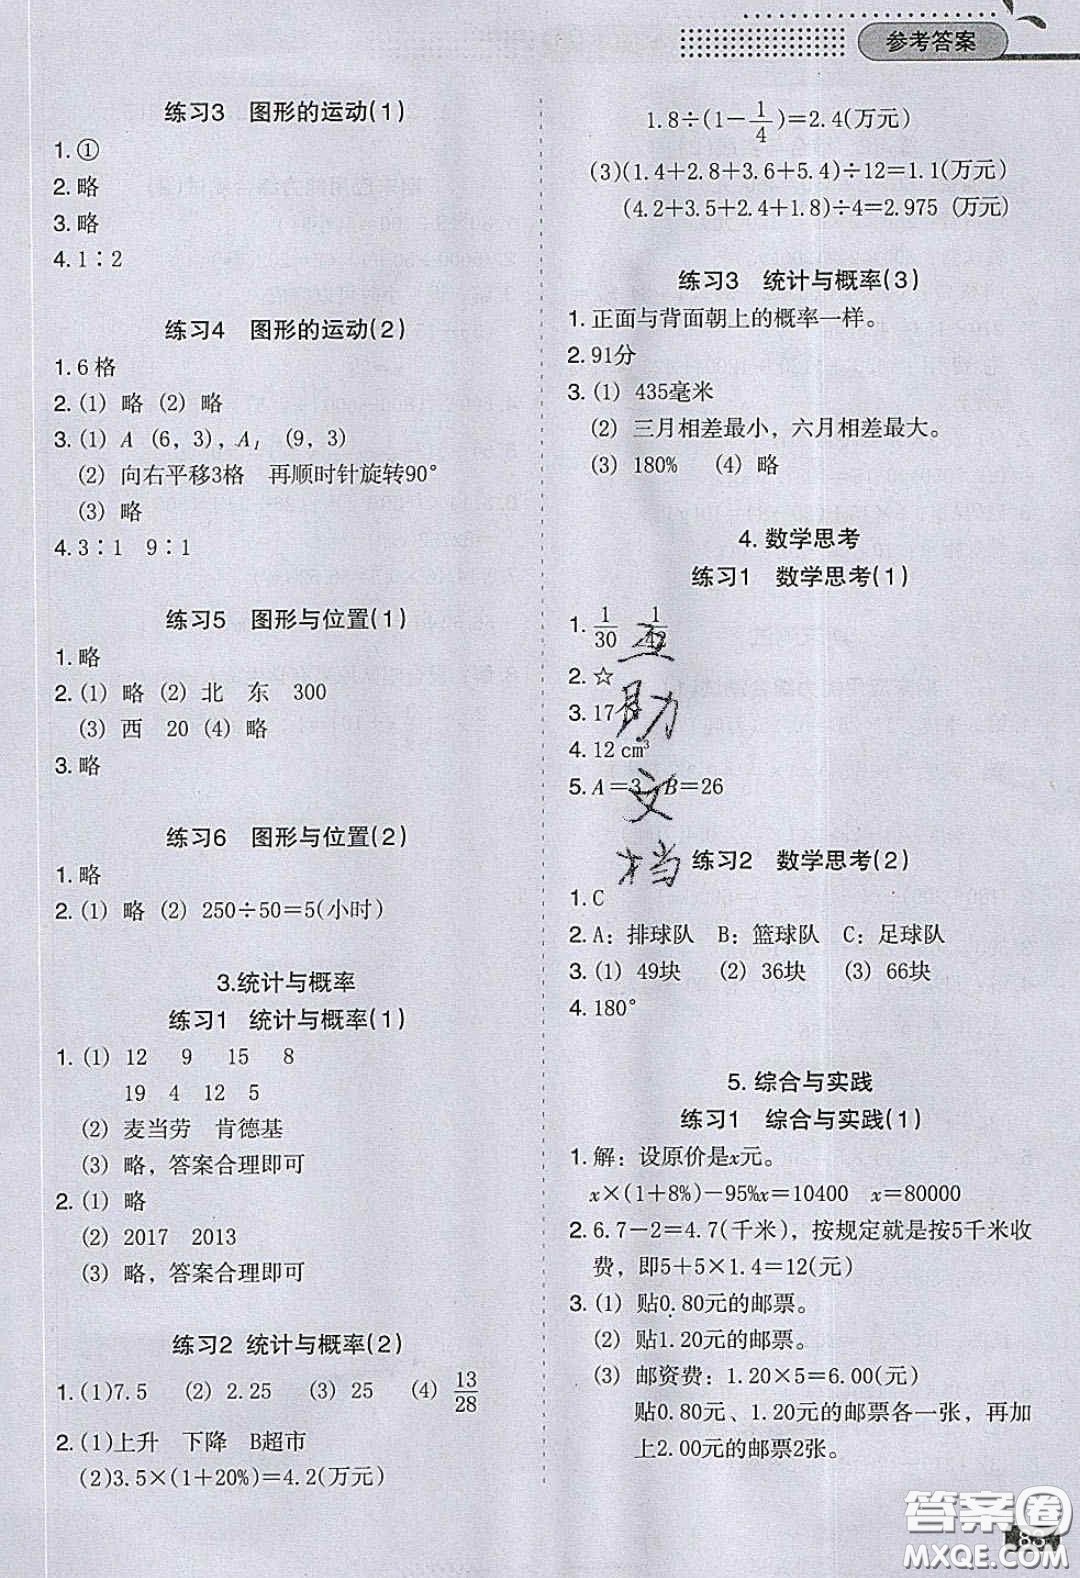 参考答案
练习3 图形的运动(1)
1. ①
2. 略
3. 略
4. 1∶2
练习4 图形的运动(2)
1. 6格
2. (1) 略 (2) 略
3. (1) A (6, 3), A₁ (9, 3)
(2) 向右平移3格 再顺时针旋转90°
(3) 略
4. 3∶1 9∶1
练习5 图形与位置(1)
1. 略
2. (1) 略 (2) 北 东 300
(3) 西 20 (4) 略
3. 略
练习6 图形与位置(2)
1. 略
2. (1) 略 (2) 250÷50=5(小时)
3.统计与概率
练习1 统计与概率(1)
1. (1) 12 9 15 8
19 4 12 5
(2) 麦当劳 肯德基
(3) 略，答案合理即可
2. (1) 略
(2) 2017 2013
(3) 略，答案合理即可
练习2 统计与概率(2)
1. (1)7.5 (2) 2.25 (3) 25 (4) 13/28
2. (1)上升 下降 B超市
(2)3.5×(1+20%)=4.2(万元)
1.8÷(1-1/4)=2.4(万元)
(3)(1.4+2.8+3.6+5.4)÷12=1.1(万元)
(4.2+3.5+2.4+1.8)÷4=2.975 (万元)
练习3 统计与概率(3)
1. 正面与背面朝上的概率一样。
2. 91分
3. (1) 435毫米
(2) 三月相差最小，六月相差最大。
(3) 180% (4) 略
4. 数学思考
练习1 数学思考(1)
1. 1/30 1/42
2. ☆
3. 17
4. 12 cm³
5. A=3 B=26
互助文档
练习2 数学思考(2)
1. C
2. A：排球队 B：篮球队 C：足球队
3. (1) 49块 (2) 36块 (3) 66块
4. 180°
5. 综合与实践
练习1 综合与实践(1)
1. 解：设原价是x元。
x×(1+8%)-95%x=10400 x=80000
2. 6.7-2=4.7(千米)，按规定就是按5千米收
费，即5+5×1.4=12(元)
3. (1) 贴0.80元的邮票。
(2) 贴1.20元的邮票。
(3) 邮资费：1.20×5=6.00(元)
贴0.80元、1.20元的邮票各一张，再加
上2.00元的邮票2张。
85
答案圈
MXQE.COM